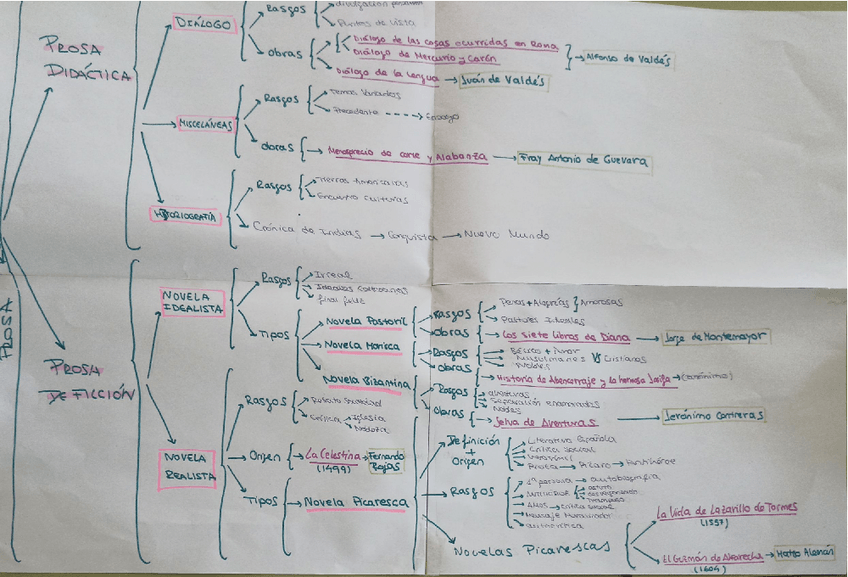 PROSA
PROSA
DIDÁCTICA
DIÁLOGO
Rasgos
divulgación
Puntos de vista
obras
Diálogo de las cosas ocurridas en Roma
Diálogo de Mercurio y Carón
Alfonso de Valdés
Diálogo de la Lengua
Juan de Valdés
MISCELÁNEAS
Rasgos
Temas Variados
Precedente
Ensayo
obras
Menosprecio de corte y Alabanza
Fray Antonio de Guevara
HISTORIOGRAFÍA
Rasgos
Tierras Americanas
Encuentro Culturas
Crónica de Indias
Conquista
Nuevo Mundo
PROSA
DE FICCIÓN
NOVELA
IDEALISTA
Rasgos
Irreal
final feliz
Tipos
Novela Pastoril
Rasgos
Penas + Alegrías
Amorosas
Pastores
obras
Los siete libros de Diana
Jorge de Montemayor
Novela Morisca
Rasgos
Musulmanes VS Cristianos
Nobles
obras
Historia de Abencerraje y la hermosa Jarifa
(anónimo)
Novela Bizantina
Rasgos
Aventuras
Separación enamorados
Nobles
Obras
Selva de Aventuras
Jerónimo Contreras
NOVELA
REALISTA
Rasgos
Crítica
Iglesia
Nobleza
Origen
La Celestina
(1499)
Fernando
Rojas
Tipos
Novela Picaresca
Definición
+
Origen
Literatura Española
Crítica social
Verosímil
Pícaro
Antihéroe
Rasgos
1ª persona
autobiografía
Amos
Crítica social
Novelas Picarescas
La Vida de Lazarillo de Tormes
El Guzmán de Alfarache
Mateo Alemán
(1604)